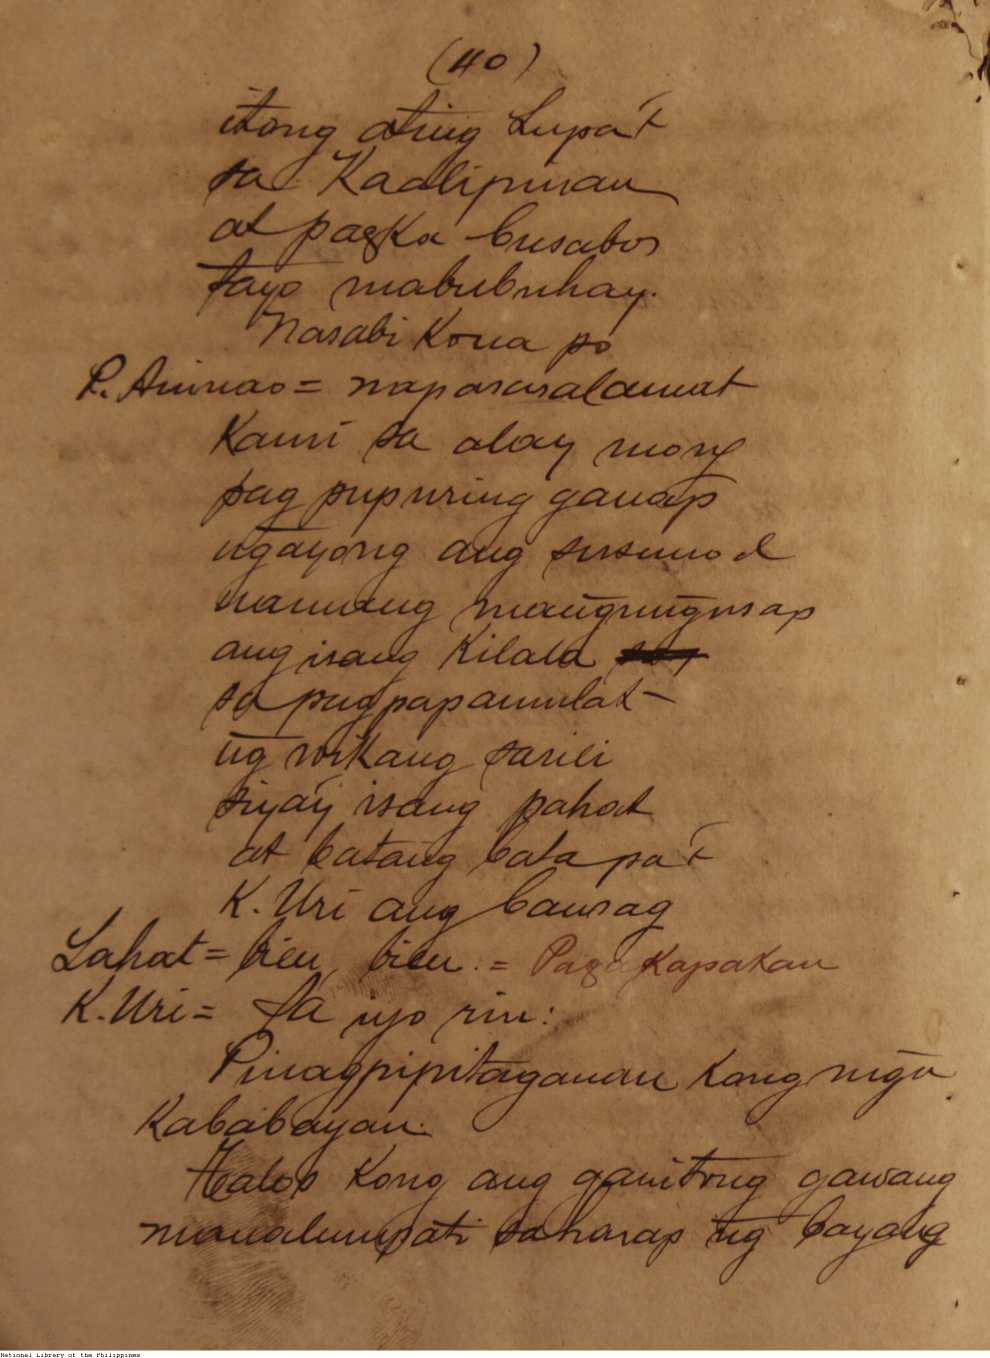 (40)
itong ating Lupa't
sa Kaalipinan
at pagka busabos
tayo mabubuhay.
Nasabi Kona po
P. Aninao = napasasalamat
Kami sa alay mong
pag pupuring ganap
ngayong ang susunod
namang mangungusap
ang isang Kilala
sa pagpapamulat -
ng wikang sarili
siya'y isang pahat
at batang bata pa't
K. Uri ang bansag
Lahat = bien, bien. = Pagakapakan
K. Uri = Sa iyo rin:
Pinagpipitaganan Kong mga
Kababayan.
Talos Kong ang ganitong gawang
manalumpati sa harap ng bayang
National Library of the Philippines